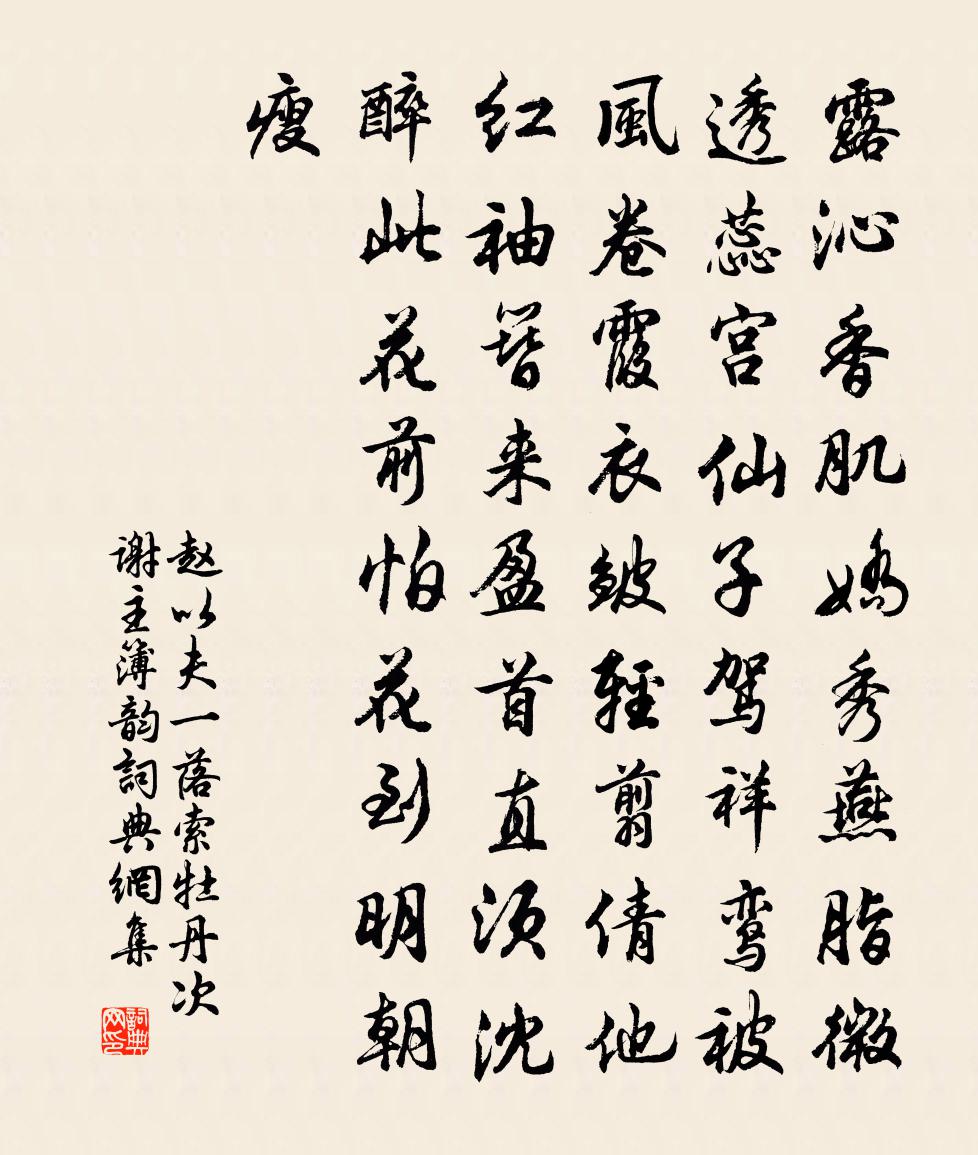 露沁香肌嬌秀燕脂微
透蕊宫仙子駕祥鸾被
風卷霞衣皴輕翦倩他
红袖簪来盈首直须沈
醉此花前怕花到明朝
瘦
赵以夫一落索牡丹次
谢主簿韵詞典網集
詞典网印